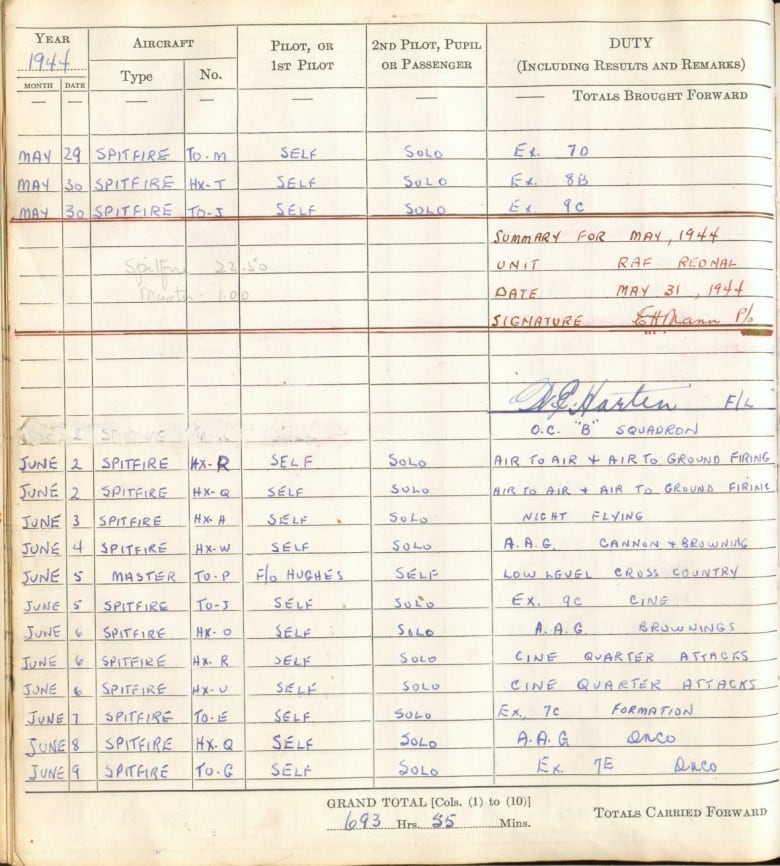 YEAR AIRCRAFT PILOT, OR 2ND PILOT, PUPIL DUTY
1944 Type No. 1ST PILOT OR PASSENGER (INCLUDING RESULTS AND REMARKS)
MONTH DATE
— — — — — — — TOTALS BROUGHT FORWARD
MAY 29 SPITFIRE TO-M SELF SOLO Ex. 7D
MAY 30 SPITFIRE HX-T SELF SOLO Ex. 8B
MAY 30 SPITFIRE TO-J SELF SOLO Ex 9C
SUMMARY FOR MAY, 1944
Spitfire 22.50 UNIT RAF REDNAL
Master 1.00 DATE MAY 31, 1944
SIGNATURE EHMann P/o
W.E.Harten F/L
O.C. "B" SQUADRON
JUNE 2 SPITFIRE HX-R SELF SOLO AIR TO AIR + AIR TO GROUND FIRING
JUNE 2 SPITFIRE HX-Q SELF SOLO AIR TO AIR + AIR TO GROUND FIRING
JUNE 3 SPITFIRE HX-A SELF SOLO NIGHT FLYING
JUNE 4 SPITFIRE HX-W SELF SOLO A.A.G. CANNON + BROWNING
JUNE 5 MASTER TO-P F/o HUGHES SELF LOW LEVEL CROSS COUNTRY
JUNE 5 SPITFIRE TO-J SELF SOLO Ex. 9C CINE
JUNE 6 SPITFIRE HX-O SELF SOLO A.A.G. BROWNINGS
JUNE 6 SPITFIRE HX-R SELF SOLO CINE QUARTER ATTACKS
JUNE 6 SPITFIRE HX-U SELF SOLO CINE QUARTER ATTACKS
JUNE 7 SPITFIRE TO-E SELF SOLO Ex, 7C FORMATION
JUNE 8 SPITFIRE HX-Q SELF SOLO A.A.G DNCO
JUNE 9 SPITFIRE TO-G SELF SOLO Ex. 7E DNCO
GRAND TOTAL [Cols. (1) to (10)] TOTALS CARRIED FORWARD
693 Hrs. 55 Mins.